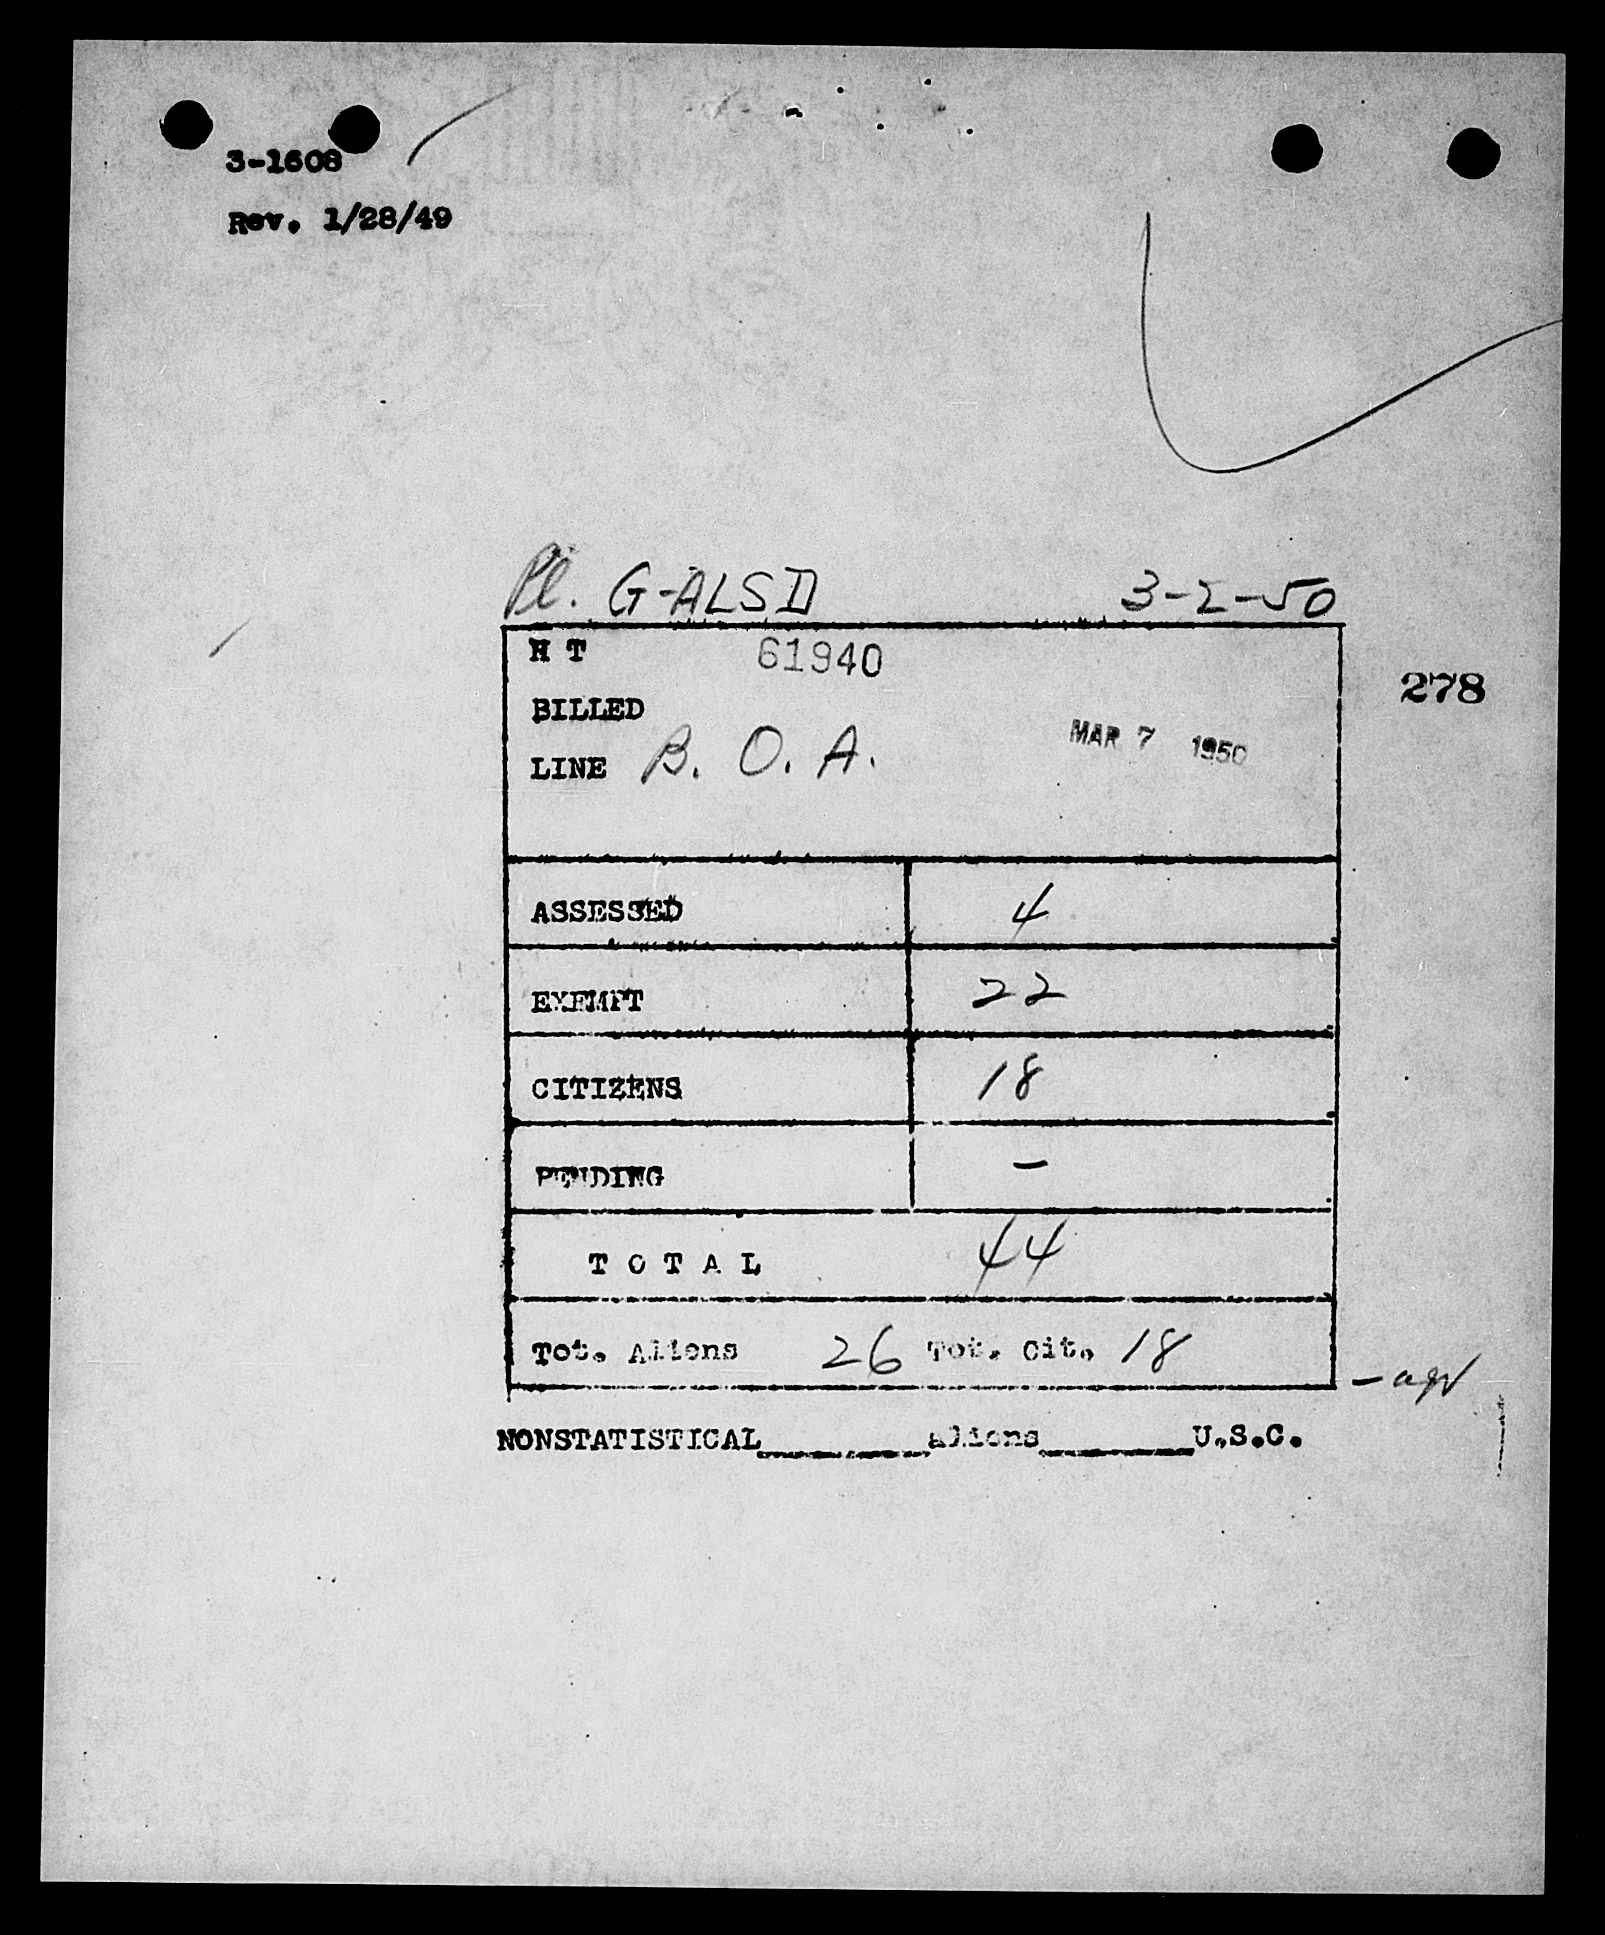 3-1608
Rev. 1/28/49
Pl. G-ALSD 3-2-50
H T 61940
278
BILLED
MAR 7 1950
LINE B. O. A.
ASSESSED 4
EXEMPT 22
CITIZENS 18
PENDING -
T O T A L 44
Tot. Aliens 26 Tot. Cit. 18
NONSTATISTICAL________Aliens________U.S.C.